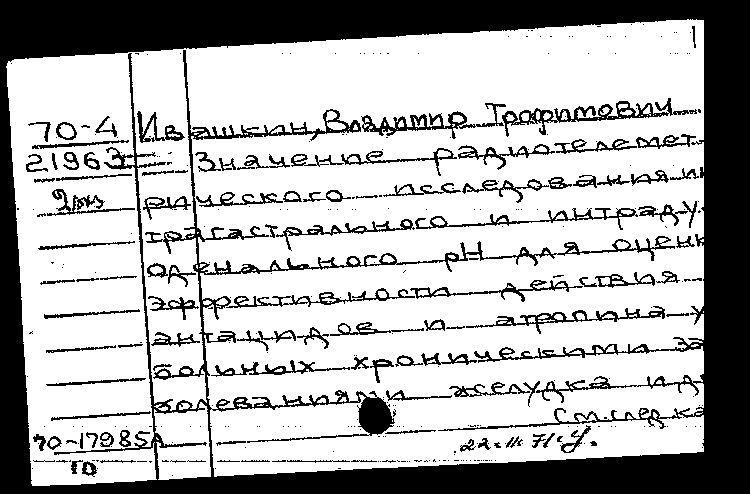 70-4 Ивашкин, Владимир Трофимович
21963 Значение радиотелемет-
2экз рического исследования ин
трагастрального и интраду-
оденального pH для оценк
эффективности действия
антацидов и атропина у
больных хроническими за
болеваниями желудка и д
См.след.ка
70-17985А
10